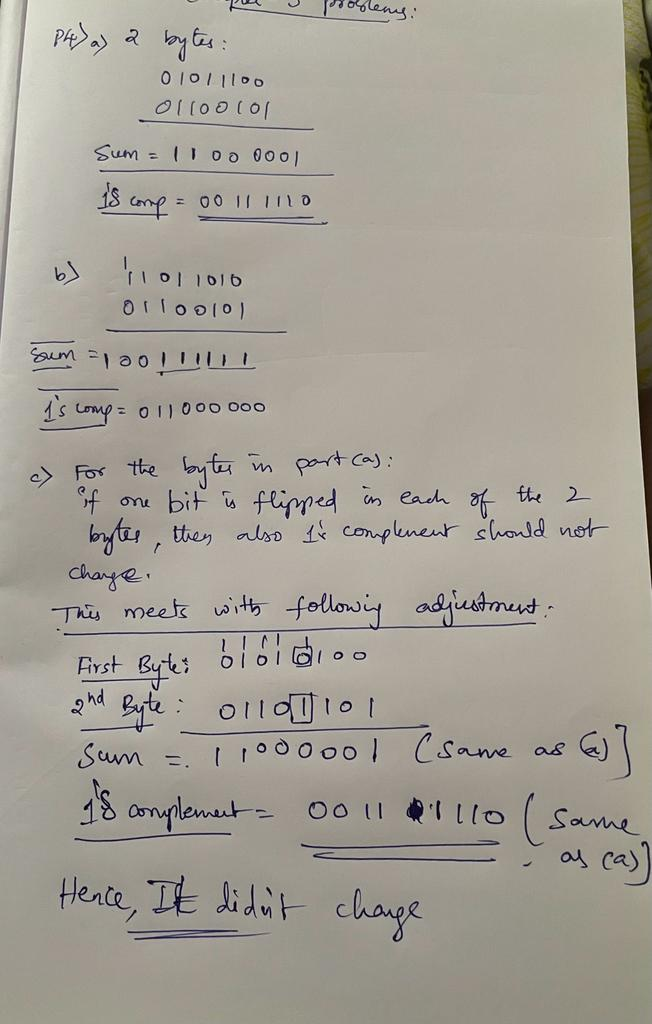 problems:
P4) a) 2 bytes:
01011100
01100101
Sum = 11000001
1's comp = 00111110
b) 1 11011010
01100101
Sum = 100111111
1's comp = 011000000
c) For the bytes in part (a):
if one bit is flipped in each of the 2
bytes, then also 1's complement should not
change.
This meets with following adjustment:
First Byte: 01010100
2nd Byte: 01101101
Sum = 11000001 (Same as (a)]
1's complement = 00111110 (Same
as (a)]
Hence, It didn't change